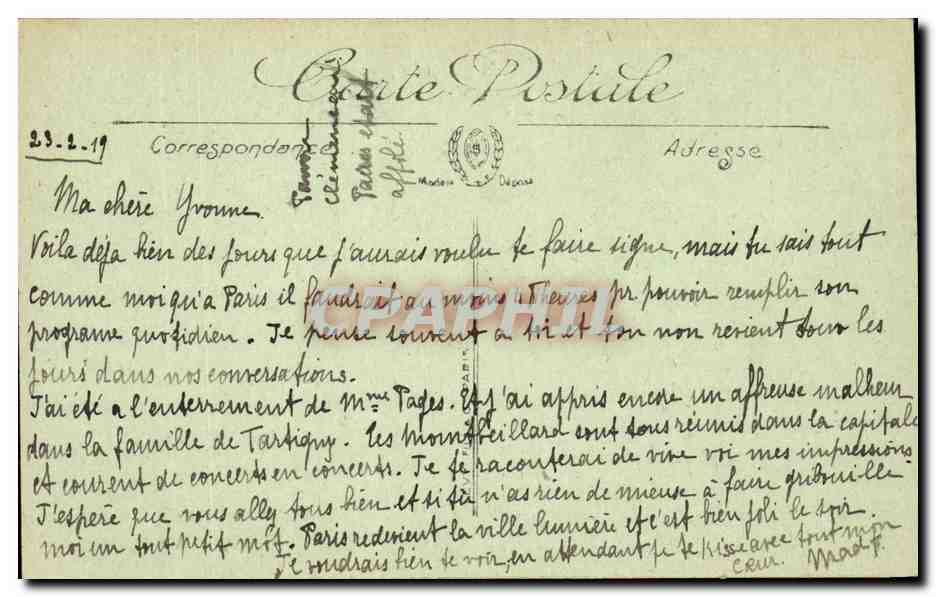 Carte Postale
23-2-19
Correspondance
Modèle Déposé
Adresse
Pauvre
Clémenceau
Paderewski
affolé
Ma chère Yvonne.
Voila déja bien des jours que j'aurais voulu te faire signe, mais tu sais tout
comme moi qu'a Paris il faudrait au moins heures pr pouvoir remplir son
programe quotidien. Je pense souvent a toi et ton non revient tous les
jours dans nos conversations.
J'ai été a l'enterrement de Mme Pages. Et j'ai appris encore un affreuse malheur
dans la famille de Tartigny. Les Montbeillard sont tous réunis dans la capitale
et courent de concerts en concerts. Je te raconterai de vive voi mes impressions
J'espère que vous allez tous bien et si tu n'as rien de mieuse à faire gribouille
moi un tout petit mot. Paris redevient la ville lumière et c'est bien joli le soir.
Je voudrais bien te voir, en attendant je te kisse avec tout mon
cœur. Mad F.
CPAPHIL